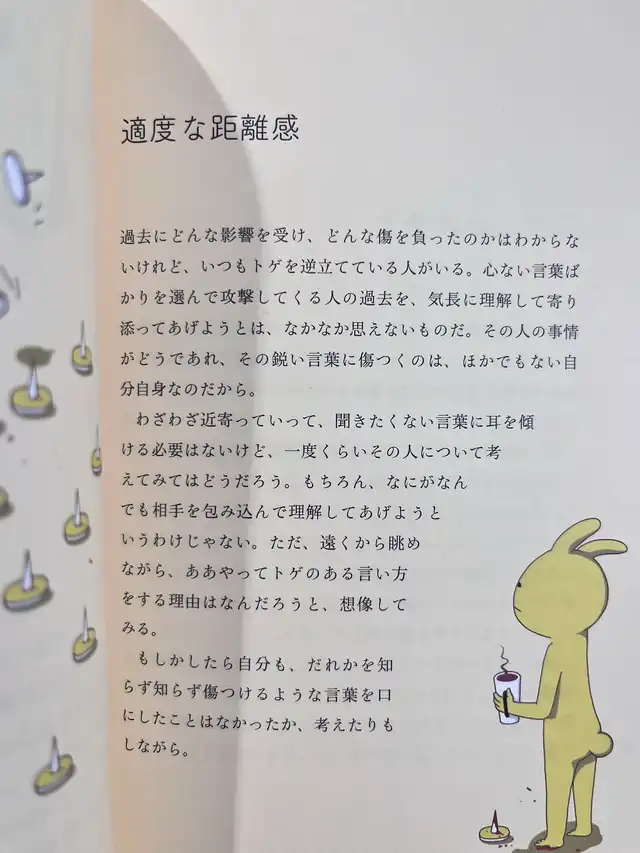 適度な距離感
過去にどんな影響を受け、どんな傷を負ったのかはわからな
いけれど、いつもトゲを逆立てている人がいる。心ない言葉ば
かりを選んで攻撃してくる人の過去を、気長に理解して寄り
添ってあげようとは、なかなか思えないものだ。その人の事情
がどうであれ、その鋭い言葉に傷つくのは、ほかでもない自
分自身なのだから。
わざわざ近寄っていって、聞きたくない言葉に耳を傾
ける必要はないけど、一度くらいその人について考
えてみてはどうだろう。もちろん、なにがなん
でも相手を包み込んで理解してあげようと
いうわけじゃない。ただ、遠くから眺め
ながら、ああやってトゲのある言い方
をする理由はなんだろうと、想像して
みる。
もしかしたら自分も、だれかを知
らず知らず傷つけるような言葉を口
にしたことはなかったか、考えたりも
しながら。